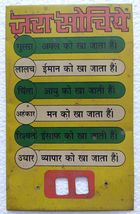 ज़रा सोचिये
गुस्सा अक्ल को खा जाता है।
लालच ईमान को खा जाता है।
चिंता आयु को खा जाता है।
अहंकार मन को खा जाता है।
रिश्वत इंसाफ को खा जाता है।
उधार व्यापार को खा जाता है।